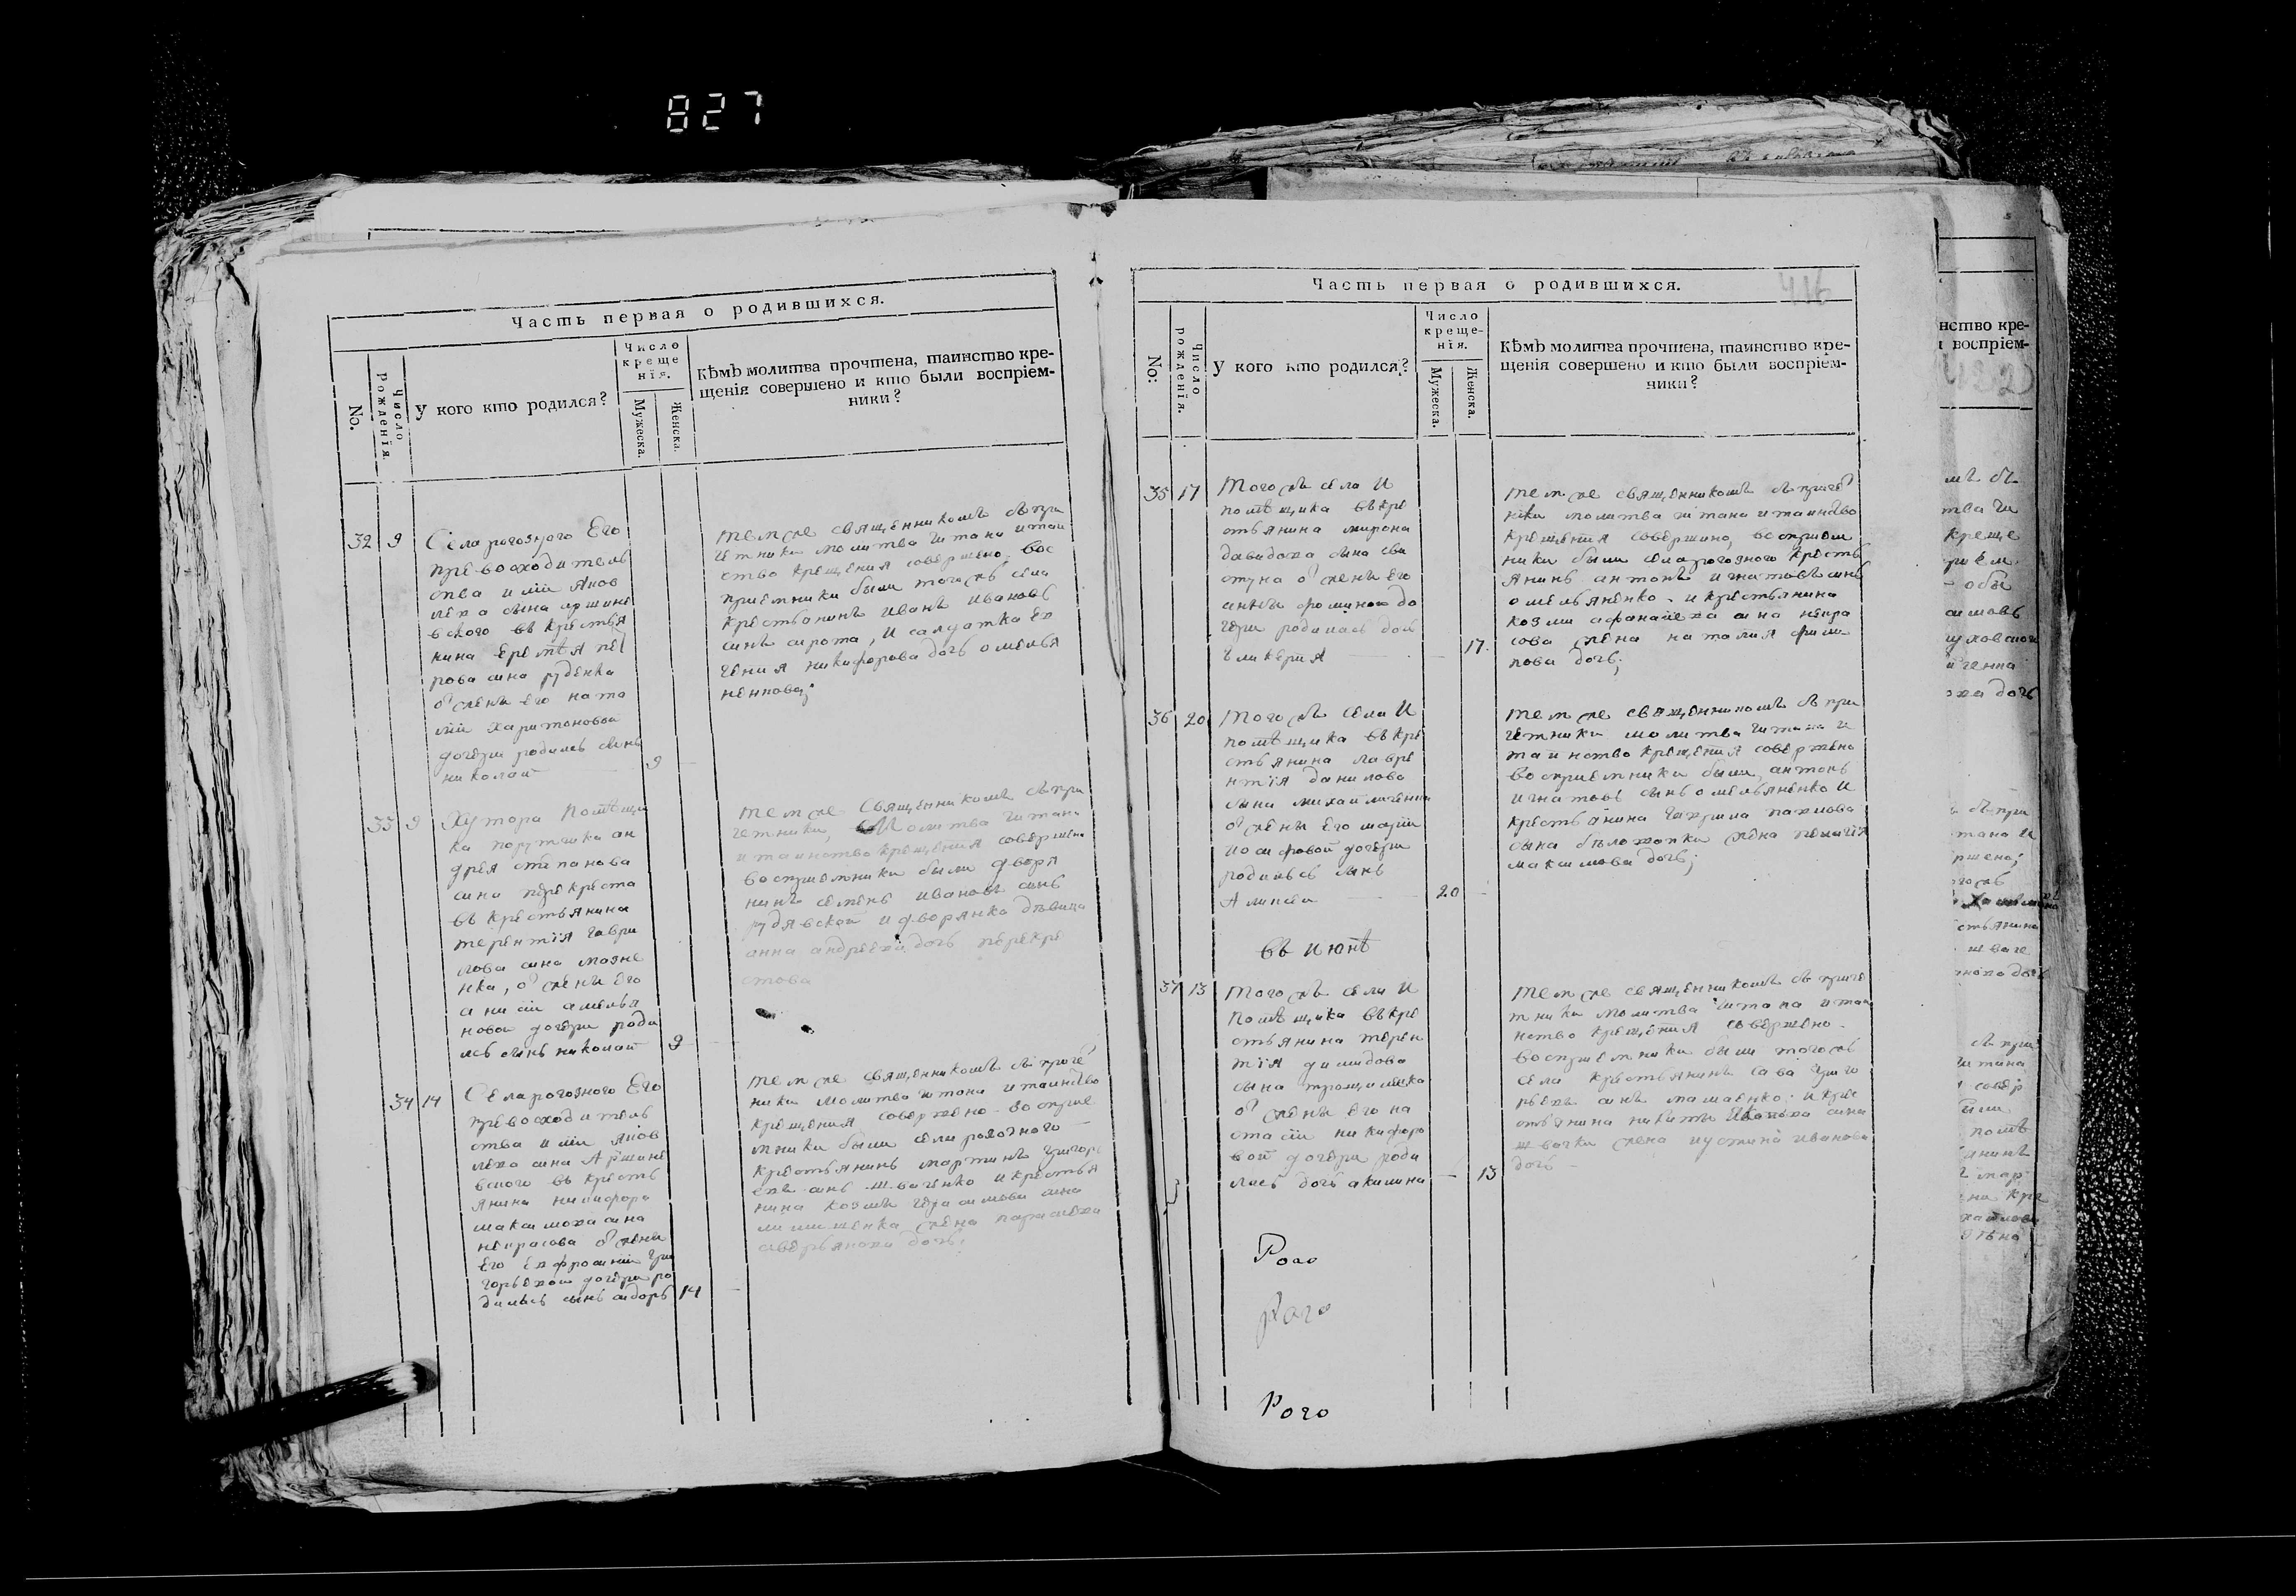 827
Часть первая о родившихся.
No.
Число рожденїя.
У кого кто родился?
Число креще нїя.
Мужеска.
Женска.
Кѣмъ молитва прочтена, таинство кре-
щенія совершено и кто были воспріем-
ники?
32 9
Села рогозного Его
превосходитель
ства иліи Яков
лева сына аршине
вского въ крестья
нина Еремѣя пет
рова сина руденка
от жены его ната
ліи харитоновой
дочери родилсь сынъ
николай 9
темже священникомъ съ при
четники молитва читана итаи
ство крещения совершено, вос
приемники были тогожъ села
крестьанинъ иванъ ивановъ
синъ сирота, и салдатка ев
гения никифорова дочь омелья
ненкова;
33 9
Хутора помѣщи
ка порутчика ан
дрея степанова
сина перекреста
въ крестьянина
терентїя гаври
лова сина мазне
нка, от жены его
анисіи амелья
новой дочери роди
лсь сынъ николай 9
темже священникомъ съ при
четники, молитва читана
и таинство крещения совершено
восприемники были дворя
нинъ семенъ ивановъ синъ
рудявской и дворянка дѣвица
анна андреева дочь перекре
стова
34 14
Села рогозного Его
превосходитель
ства иліи яков
лева сина Аршине
вского въ кресть
янина никифора
максимова сина
некрасова от жени
его евфросиніи гри
горьевой дочери ро
дилась сынъ сидоръ 14
темже священникомъ съ приче
ники молитва читана и таинство
крещения совержено восприе
мники были села рогозного
крестьянинъ мартинъ григорь
евъ синъ шваченко и крестья
нина козмы герасимова сина
жена параскева
аверьянова дочь.
Часть первая о родившихся.
416
No:
Число рожденїя.
У кого кто родился?
Число креще- нїя.
Мужеска.
Женска.
Кѣмъ молитва прочтена, таинство кре-
щенія совершено и кто были воспріем-
ники?
35 17
Тогожъ села и
помѣщика въ кре
стьянина мирона
давидова сина сви
стуна от жены его
анны фоминой до
чери родилась дочь
гликерия 17.
темже священникомъ съ приче
ники молитва читана и таинство
крещения совершино, восприем
ники были села рогозного кресть
янинъ антонъ игнатовъ синъ
омельяненко и крестьянина
козми афанасева сина некра
сова жена наталия фили
пова дочь;
36 20
Тогожъ села и
помѣщика въ кре
стьянина лавре
нтїя данилова
сына михайличенка
от жены его маріи
иосифовой дочери
родилсь синъ
Алипеи 20
темже священникомъ съ при
четники молитва читана и
таинство крещения совержено
восприемники были, антонъ
игнатовъ сынъ омельяненко и
крестьянина гаврила павлова
сына бѣложапки жена пелагїя
максимова дочь;
въ июнѣ
37 13
Тогожъ села и
помѣщика въ кре
стьянина терен
тїя димидова
сына трощименка
от жены его на
стасіи никифоро
вой дочери роди
лась дочь акилина 13
темже священникомъ съ приче
тники молитва читана и таи
нство крещения совержено
восприемники были тогожъ
села крестьянинъ сава григо
рьевъ синъ мамаенко и крес
тьянина никиты иванова сина
швачки жена иустина иванова
дочь
Рого
Рого
Рого